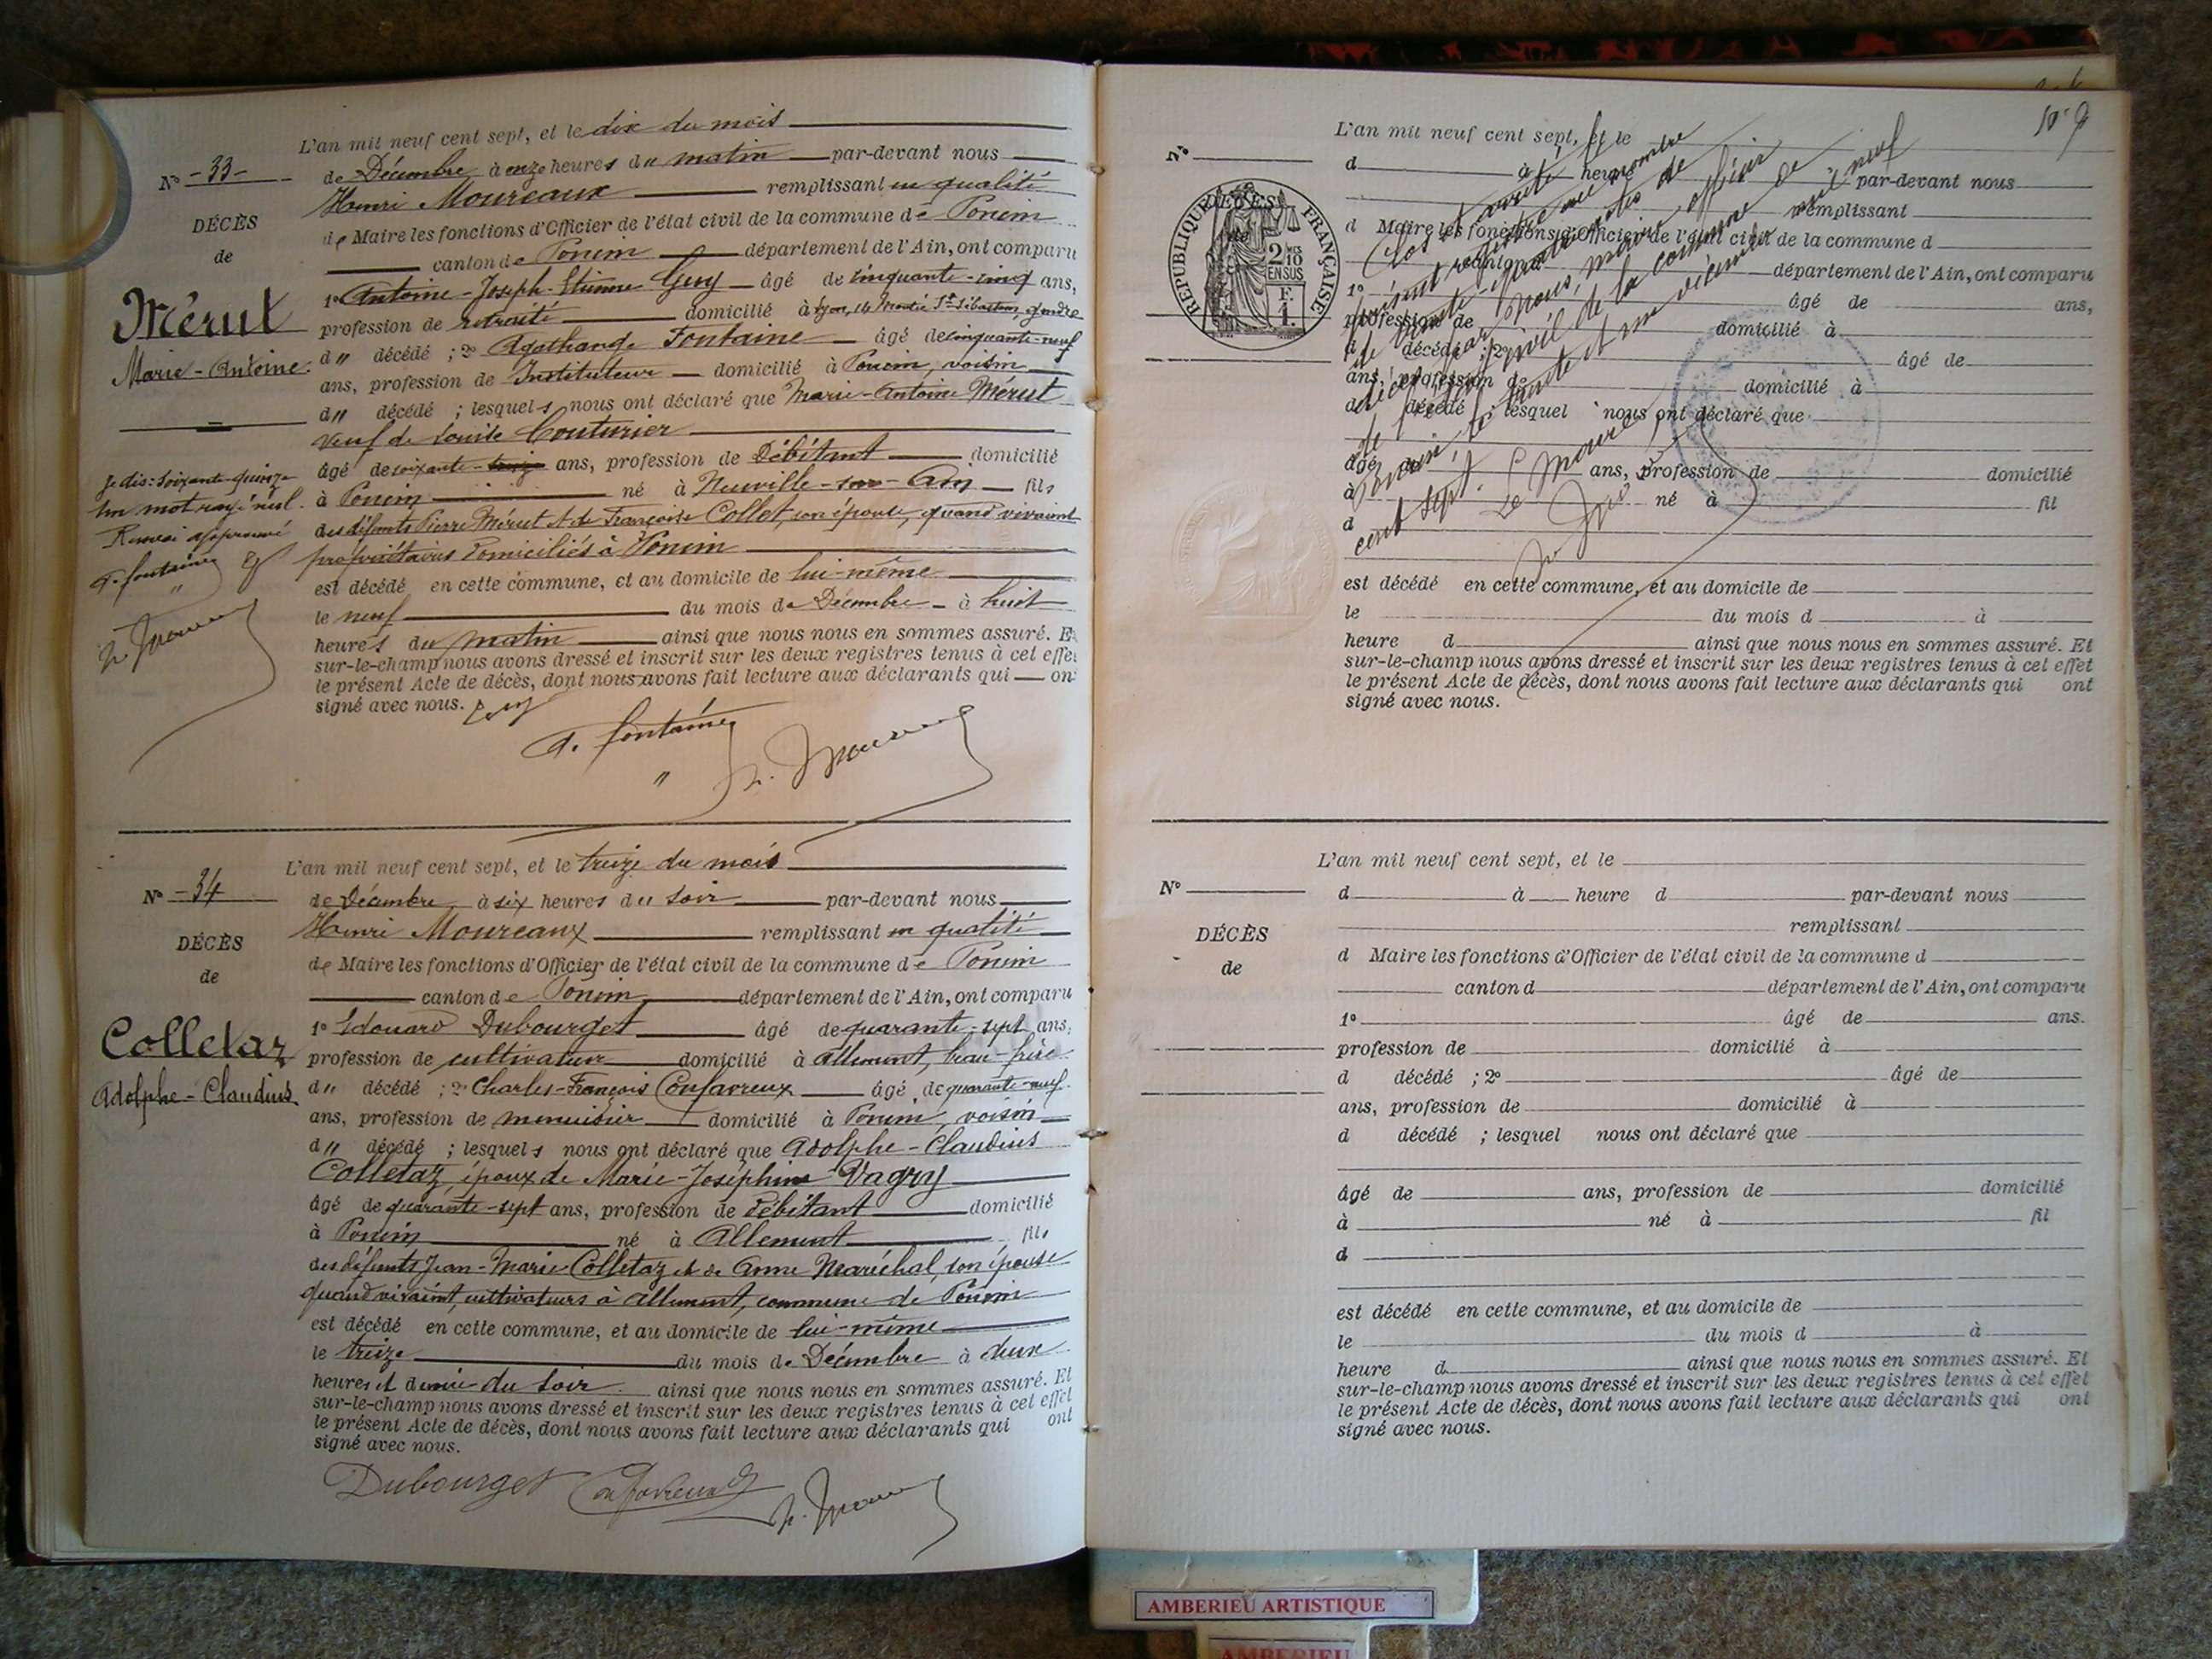 L'an mil neuf cent sept, et le dix du mois
N° -33-
de Décembre à onze heures du matin par-devant nous
Henri Moureaux remplissant en qualité
DÉCÈS
de Maire les fonctions d'Officier de l'état civil de la commune de Poncin
de
canton de Poncin département de l'Ain, ont comparu
1° Antoine-Joseph-Etienne Guy âgé de cinquante-cinq ans,
Mérut
profession de retraité domicilié à Lyon, 16 Montée St Sébastien, gendre
d" décédé ; 2° Agathange Fontaine âgé de cinquante-neuf
Marie-Antoine
ans, profession de Instituteur domicilié à Poncin, voisin
d" décédé ; lesquels nous ont déclaré que Marie-Antoine Mérut
veuf de Louise Couturier
âgé de soixante-treize ans, profession de Débitant domicilié
Je dis: soixante-quinze
à Poncin né à Neuville-sur-Ain fils
Un mot rayé nul.
des défunts Pierre Mérut et de Françoise Collet, son épouse, quand vivaient
Renvoi approuvé
propriétaires domiciliés à Poncin
A. fontaine
est décédé en cette commune, et au domicile de lui-même
le neuf du mois de Décembre à huit
h. Moureaux
heures du matin ainsi que nous nous en sommes assuré. Et
sur-le-champ nous avons dressé et inscrit sur les deux registres tenus à cet effet
le présent Acte de décès, dont nous avons fait lecture aux déclarants qui ont
signé avec nous. Guy
A. fontaine
h. Moureaux
L'an mil neuf cent sept, et le treize du mois
N° -34
de Décembre à six heures du soir par-devant nous
Henri Moureaux remplissant en qualité
DÉCÈS
de Maire les fonctions d'Officier de l'état civil de la commune de Poncin
de
canton de Poncin département de l'Ain, ont comparu
1° Edouard Dubourget âgé de quarante-sept ans,
Colletaz
profession de cultivateur domicilié à Allement, beau-frère
Adolphe-Claudius
d" décédé ; 2° Charles-François Confavreux âgé de quarante-neuf
ans, profession de menuisier domicilié à Poncin, voisin
d" décédé ; lesquels nous ont déclaré que Adolphe-Claudius
Colletaz, époux de Marie-Joséphine Vagry
âgé de quarante-sept ans, profession de Débitant domicilié
à Poncin né à Allement fils
des défunts Jean-Marie Colletaz et de Anne Maréchal, son épouse
quand vivaient, cultivateurs à Allement, commune de Poncin
est décédé en cette commune, et au domicile de lui-même
le treize du mois de Décembre à deux
heures et demie du soir ainsi que nous nous en sommes assuré. Et
sur-le-champ nous avons dressé et inscrit sur les deux registres tenus à cet effet
le présent Acte de décès, dont nous avons fait lecture aux déclarants qui ont
signé avec nous.
Dubourget Confavreux h. Moureaux
L'an mil neuf cent sept, et le
N°
d à heure
par-devant nous
remplissant
RÉPUBLIQUE FRANÇAISE
2/10 EN SUS
F. 1.
d Maire les fonctions d'Officier de l'état civil de la commune d
canton d département de l'Ain, ont comparu
1° âgé de ans,
profession de domicilié à
d décédé ; 2° âgé de
ans, profession de domicilié à
d décédé ; lesquel nous ont déclaré que
âgé de ans, profession de domicilié
à né à fil
d
Clos et arrêté le
présent registre au nombre
de trente-quatre actes de
décès par Nous, maire officier
de l'état civil de la commune de
Poncin, le trente et un décembre mil neuf
cent sept. Le Maire,
h. Moureaux
est décédé en cette commune, et au domicile de
le du mois d à
heure d ainsi que nous nous en sommes assuré. Et
sur-le-champ nous avons dressé et inscrit sur les deux registres tenus à cet effet
le présent Acte de décès, dont nous avons fait lecture aux déclarants qui ont
signé avec nous.
L'an mil neuf cent sept, et le
N°
d à heure d par-devant nous
remplissant
DÉCÈS
d Maire les fonctions d'Officier de l'état civil de la commune d
de
canton d département de l'Ain, ont comparu
1° âgé de ans.
profession de domicilié à
d décédé ; 2° âgé de
ans, profession de domicilié à
d décédé ; lesquel nous ont déclaré que
âgé de ans, profession de domicilié
à né à fil
d
est décédé en cette commune, et au domicile de
le du mois d à
heure d ainsi que nous nous en sommes assuré. Et
sur-le-champ nous avons dressé et inscrit sur les deux registres tenus à cet effet
le présent Acte de décès, dont nous avons fait lecture aux déclarants qui ont
signé avec nous.
AMBERIEU ARTISTIQUE
AMBERIEU